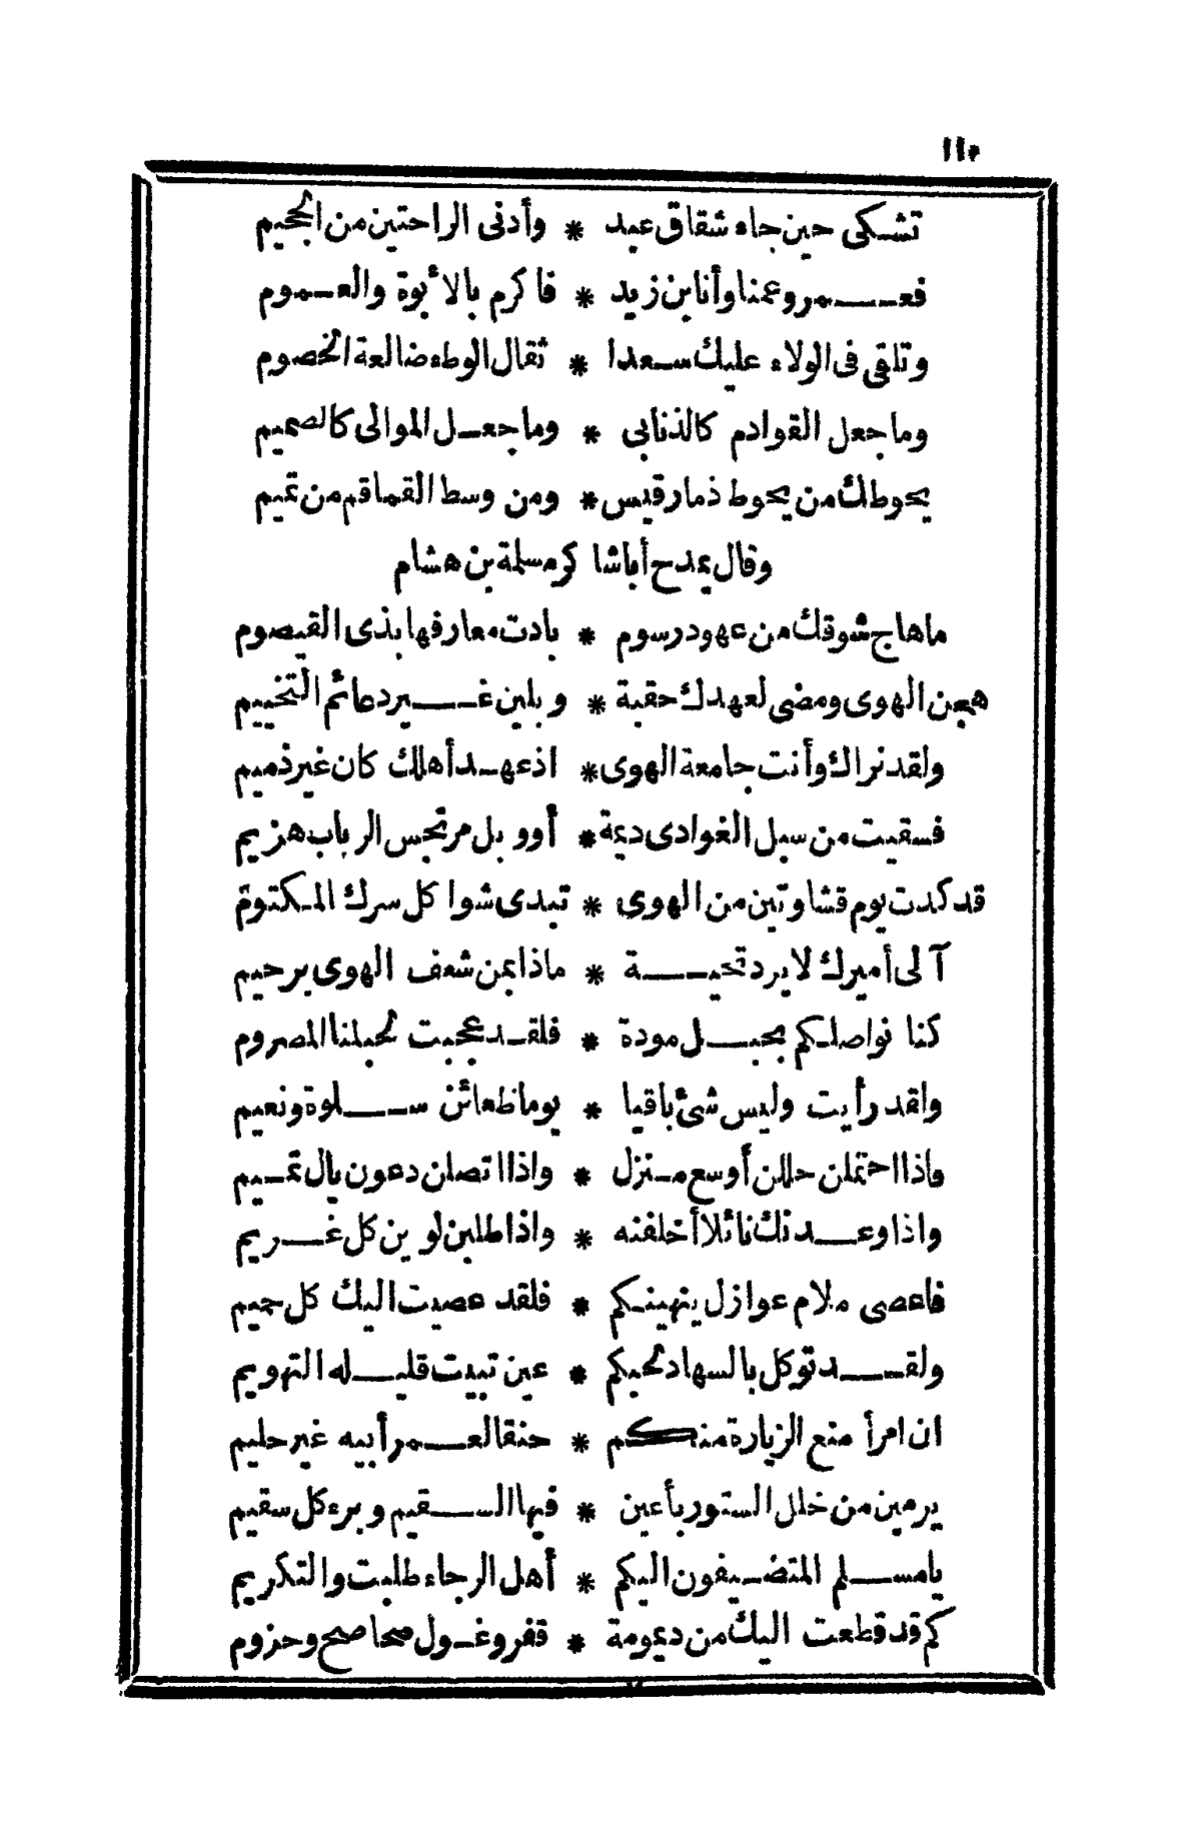 ١١٥
تشكى حين جاء شقاق عبد * وأدنى الراحتين من الجحيم
فعمرو عمنا وأنا بن زيد * فاكرم بالأبوة والعموم
وتلقى فى الولاء عليك سعدا * ثقال الوطء ضالعة الخصوم
وما جعل القوادم كالذنابى * وما جعل الموالى كالصميم
يحوطك من يحوط ذمار قيس * ومن وسط القماقم من تميم
وقال يمدح أباشا كر مسلمة بن هشام
ما هاج شوقك من عهود رسوم * بادت معارفها بذى القيصوم
هجن الهوى ومضى لعهدك حقبة * وبلين غير دعائم التخييم
ولقد نراك وأنت جامعة الهوى * اذ عهد أهلك كان غير ذميم
فسقيت من سبل الغوادى ديمة * أو وبل مرتجس الرباب هزيم
قد كدت يوم قشاوتين من الهوى * تبدى شوا كل سرك المكتوم
آلى أميرك لا يرد تحية * ماذا بمن شعف الهوى برحيم
كنا نواصلكم بحبل مودة * فلقد عجبت لحبلنا المصروم
ولقد رأيت وليس شئ باقيا * يوما ظعائن سلوة ونعيم
فاذا احتملن حللن أوسع منزل * واذا اتصلن دعون يال تميم
واذا وعدنك نائلا أخلفنه * واذا طلبن لوين كل غريم
فاعصى ملام عواذل ينهينكم * فلقد عصيت اليك كل حميم
ولقد توكل بالسهاد لحبكم * عين تبيت قليله التهويم
ان امرأ منع الزيارة منكم * حنقا لعمر أبيه غير حليم
يرمين من خلل الستور بأعين * فيها السقيم وبرء كل سقيم
يا مسلم المتضيفون اليكم * أهل الرجاء طلبت والتكريم
كم قد قطعت اليك من ديمومة * قفر وغول صحاصح وحزوم